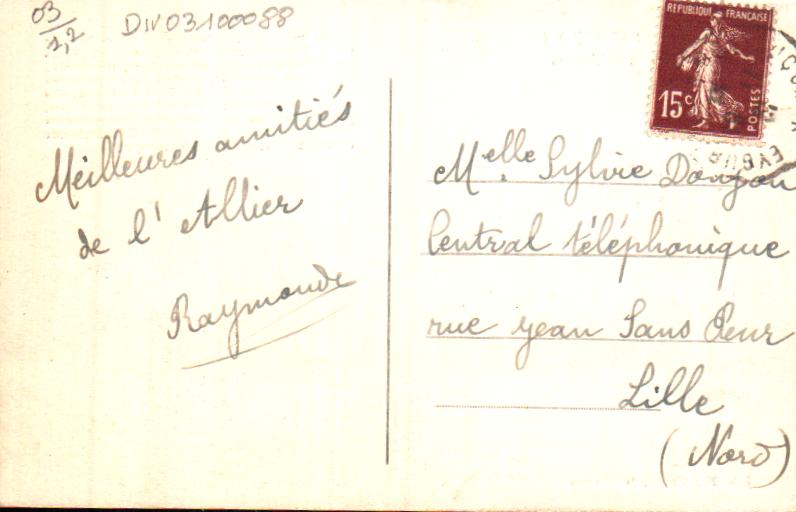 03/1,2 DIV03100088
Meilleures amitiés
de l'Allier
Raymonde
REPUBLIQUE FRANÇAISE
15c
POSTES
Melle Sylvie
Central téléphonique
rue Jean Sans Peur
Lille
(Nord)